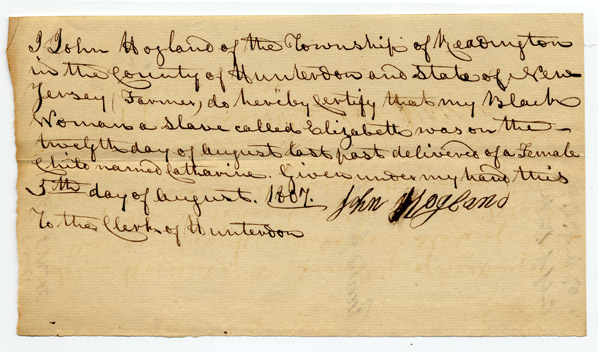 I John Hogland of the Township of Readington
in the County of Hunterdon and State of New
Jersey (Farmer) do hereby Certify that my Black
Woman a Slave called Elizabeth was on the
twelfth day of august last past delivered of a Female
Child named Catharine. Given under my hand this
5th day of august. 1807. John Hogland
To the Clerk of Hunterdon